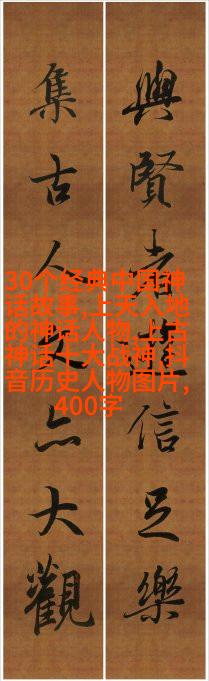 與賢者遊信足樂
集古人文亦大觀
30个经典中国神
话故事,上天入地
的神话人物,上古
神话十大战神,抖
音历史人物图片,
400字